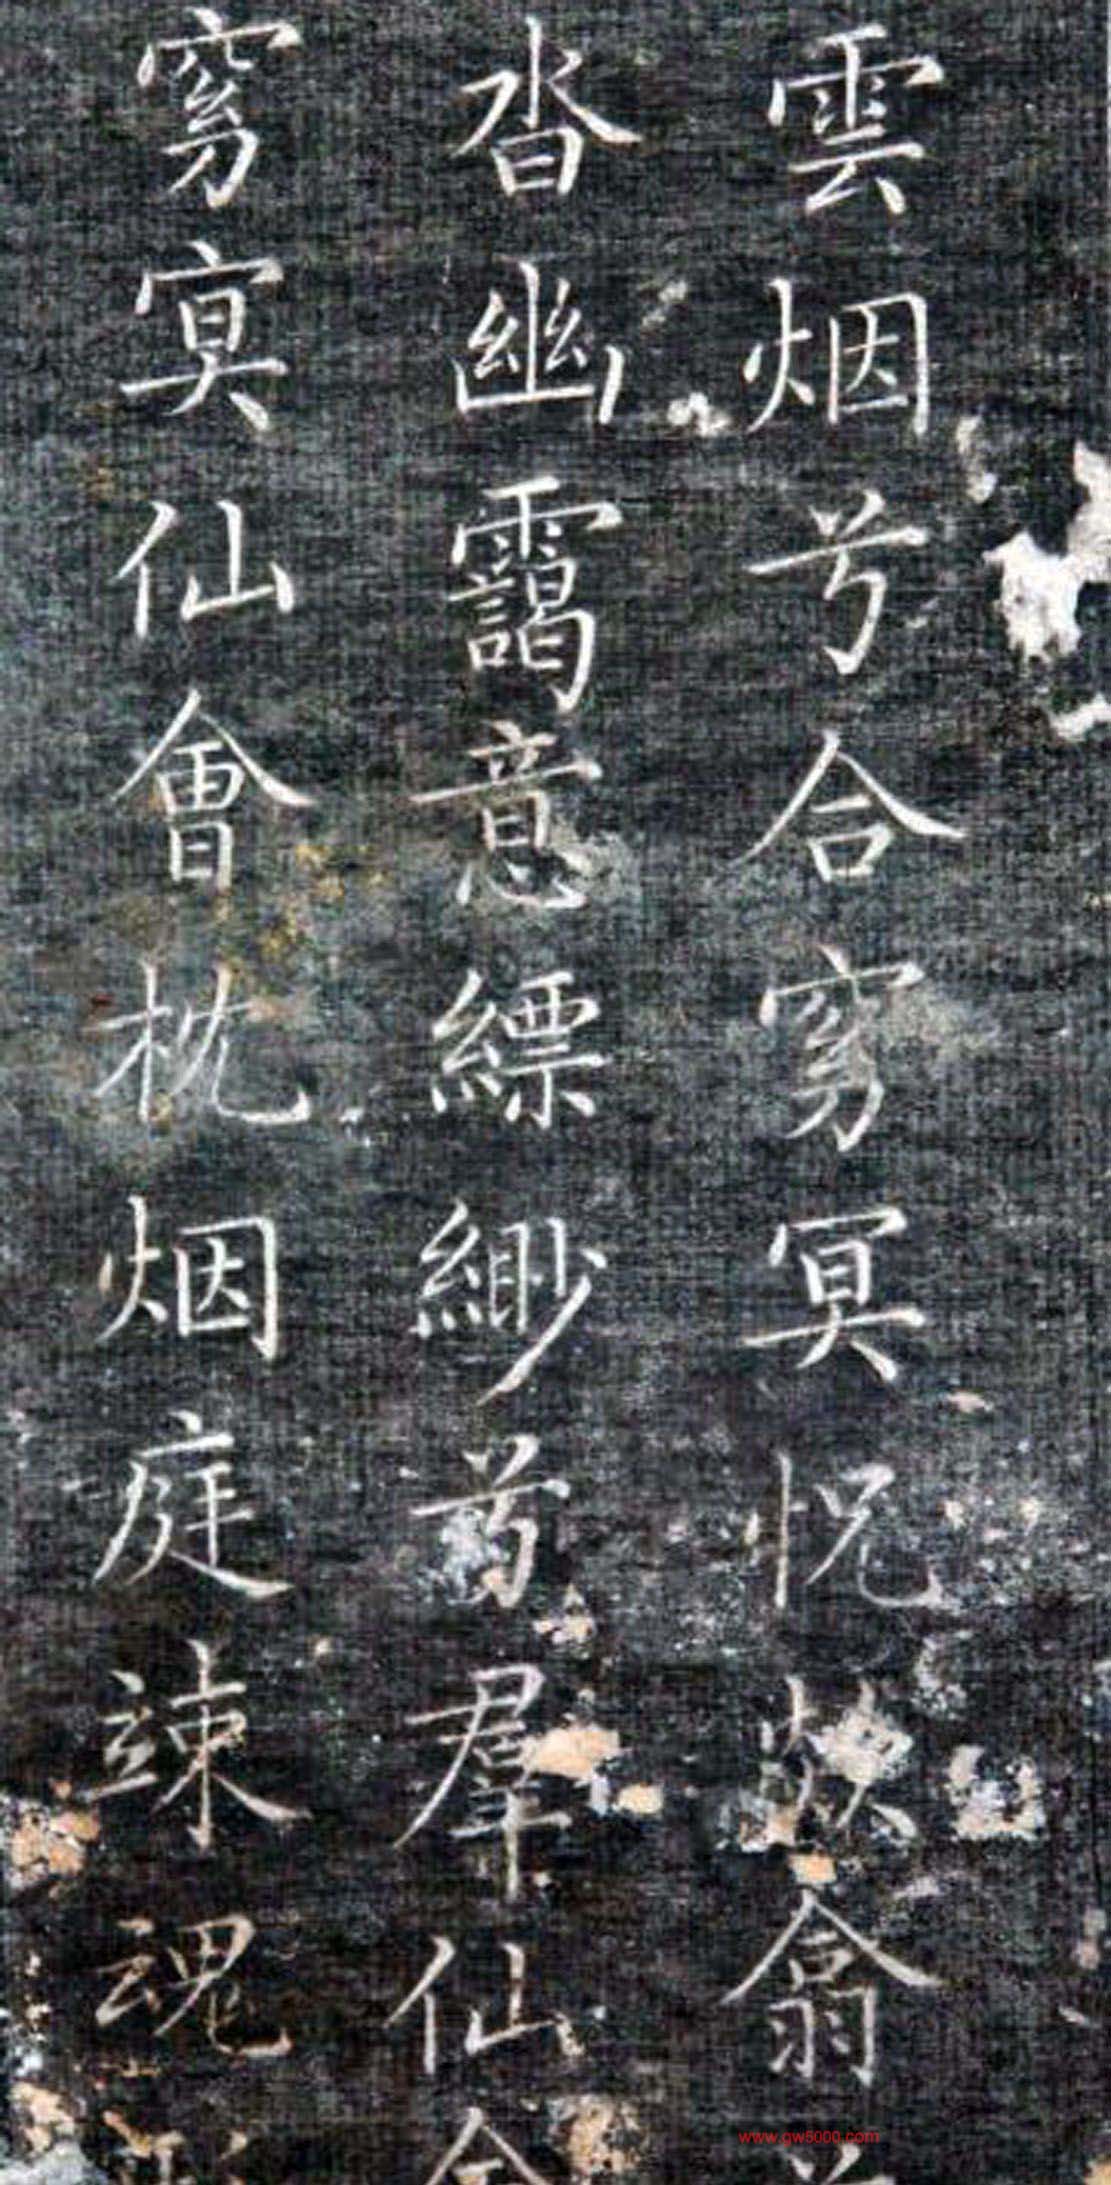 雲烟兮合窈冥怳欻翕
沓幽靄意縹緲兮羣仙會
窈冥仙會枕烟庭竦魂
www.gw8000.com